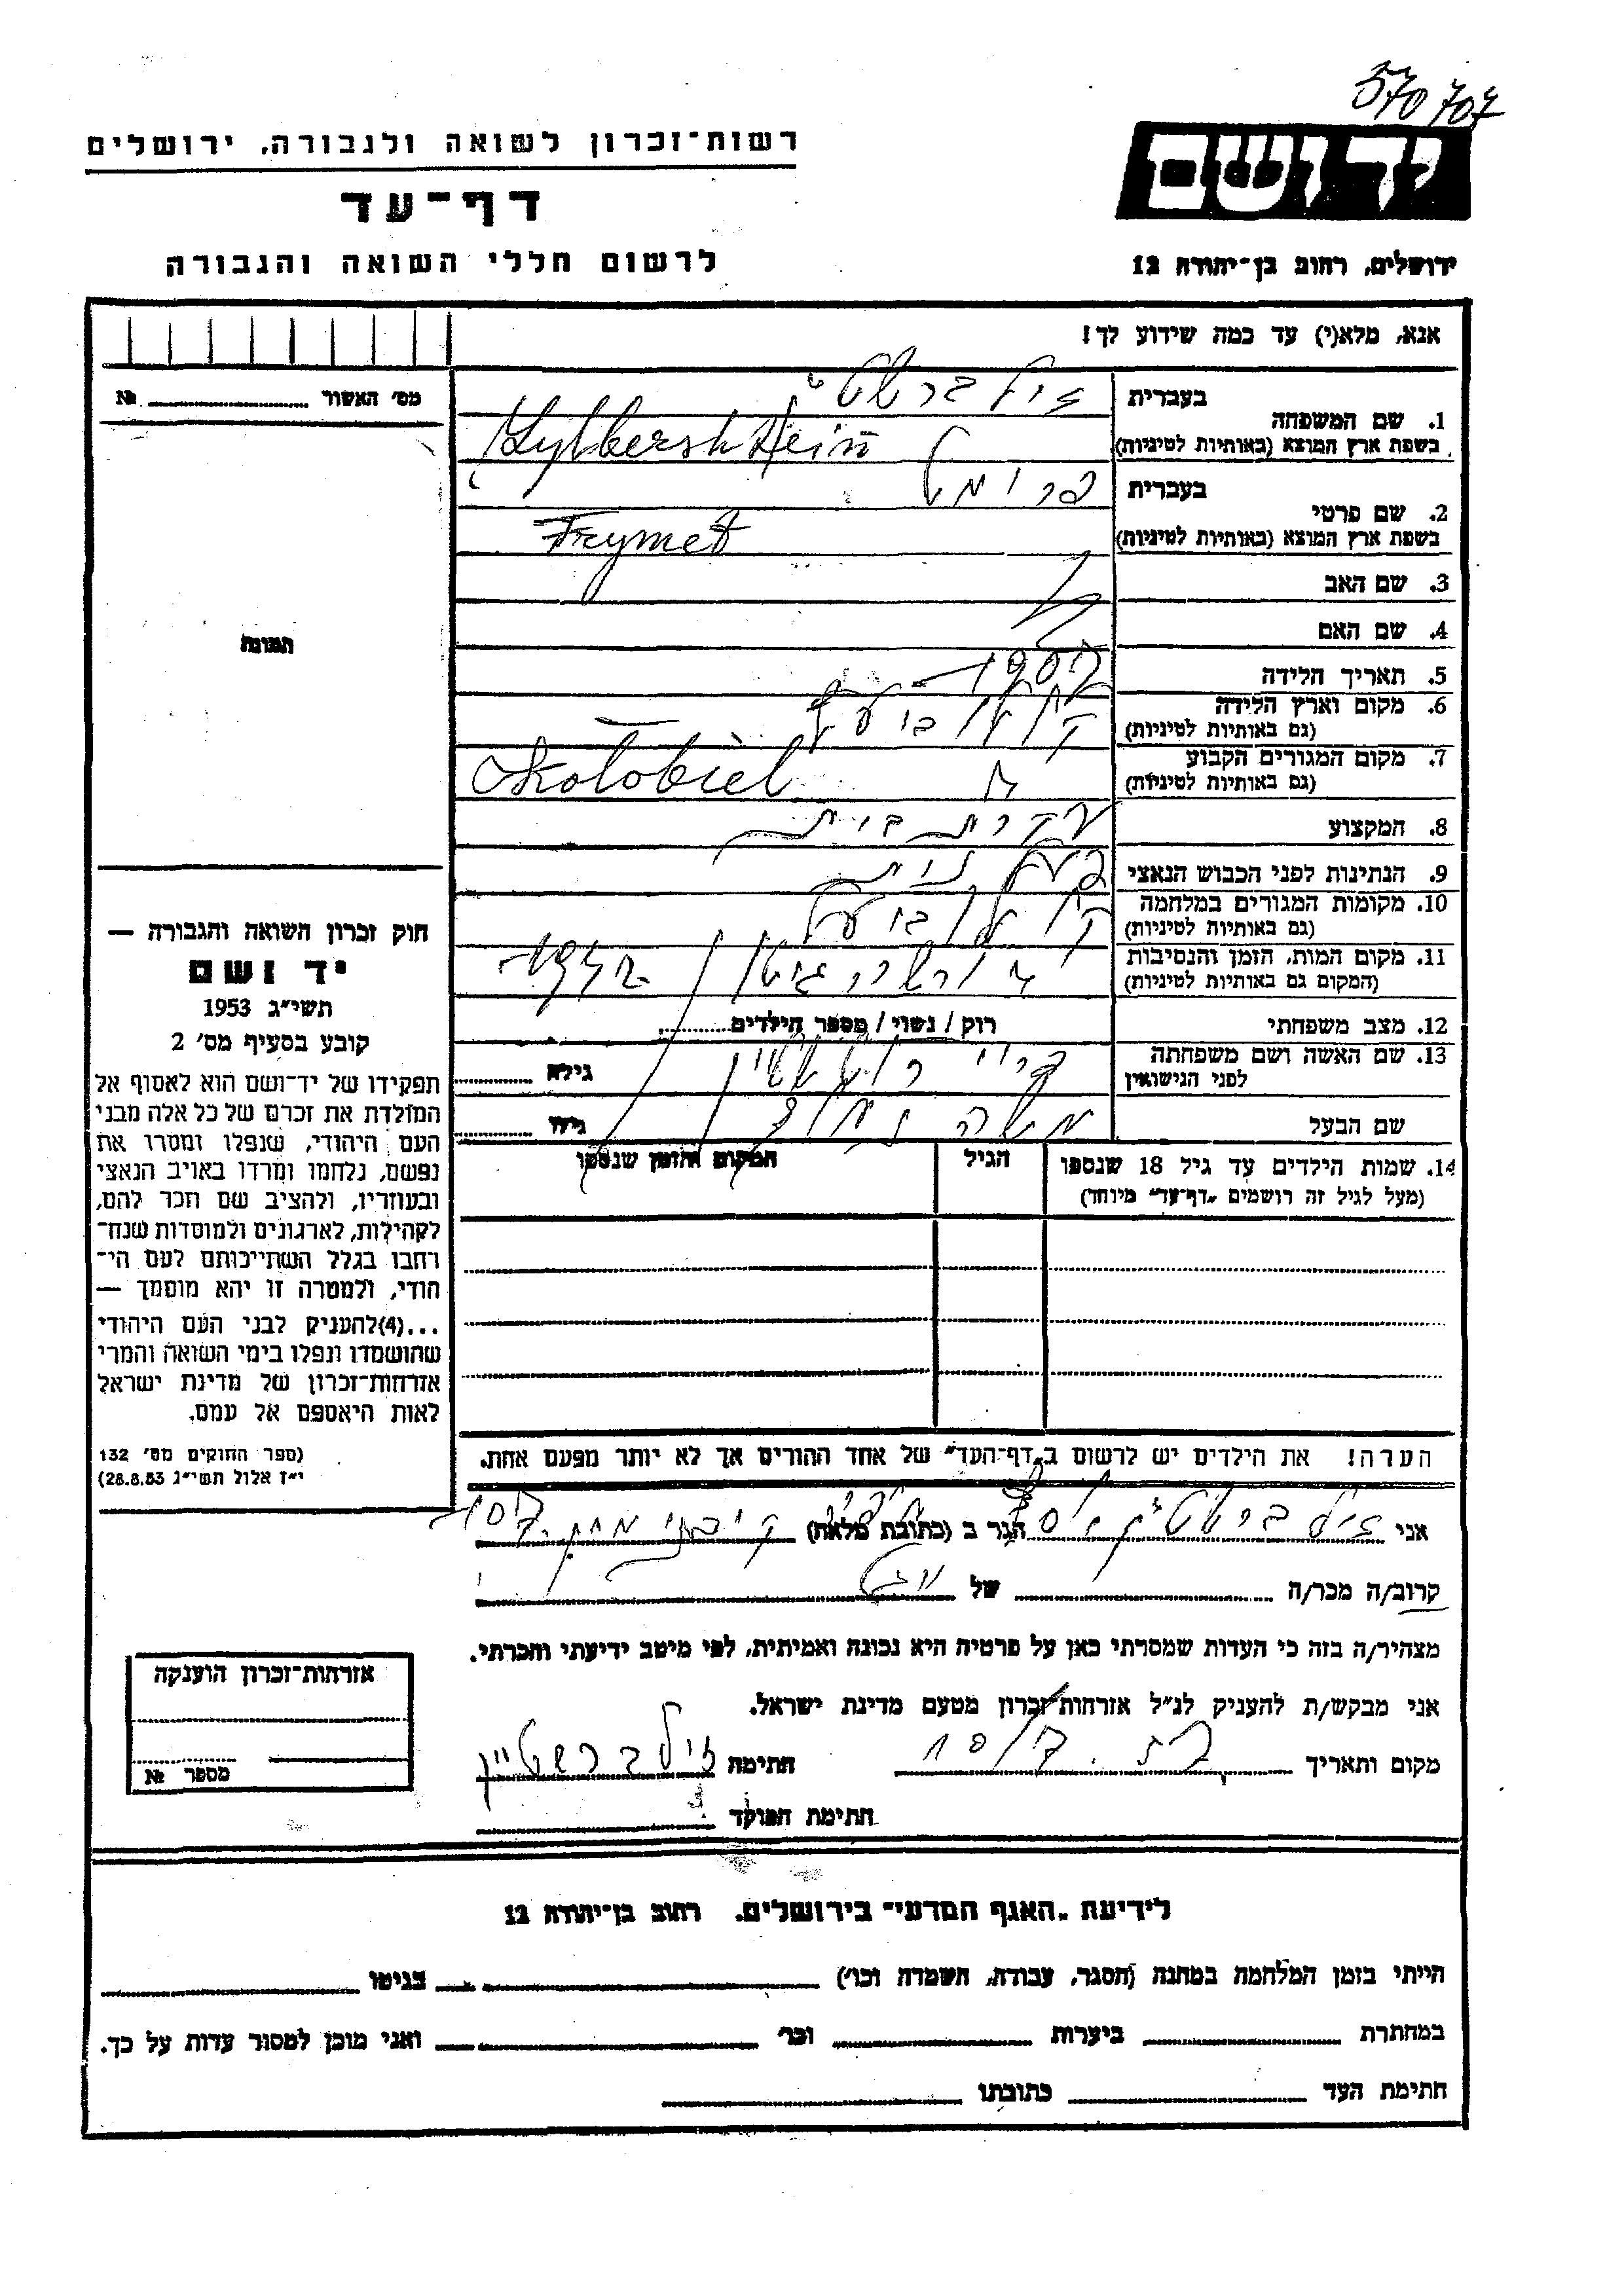 570707
רשות־זכרון לשואה ולגבורה, ירושלים
דף־עד
לרשום חללי השואה והגבורה
יד ושם
ירושלים, רחוב בן־יהודה 12
אנא, מלא(י) עד כמה שידוע לך!
מס׳ האשור № 
1. שם המשפחה
בעברית
בשפת ארץ המוצא (באותיות לטיניות)
Zylbershtein
2. שם פרטי
בעברית פרומט
בשפת ארץ המוצא (באותיות לטיניות) Frymet
3. שם האב
4. שם האם
5. תאריך הלידה
6. מקום וארץ הלידה
(גם באותיות לטיניות)
קולוביעל
7. מקום המגורים הקבוע
(גם באותיות לטיניות)
Kolobiel
8. המקצוע עקרת בית
9. הנתינות לפני הכבוש הנאצי
10. מקומות המגורים במלחמה
(גם באותיות לטיניות)
קולוביעל
11. מקום המות, הזמן והנסיבות
(המקום גם באותיות לטיניות)
1942
12. מצב משפחתי רוק / נשוי / מספר הילדים
13. שם האשה ושם משפחתה
לפני הנישואין
גילה
שם הבעל משה
גילו
14. שמות הילדים עד גיל 18 שנספו
(מעל לגיל זה רושמים "דף־עד" מיוחד)
הגיל
המקום והזמן שנספו
הערה! את הילדים יש לרשום ב"דף־העד" של אחד ההורים אך לא יותר מפעם אחת.
תמונה
חוק זכרון השואה והגבורה —
יד ושם
תשי״ג 1953
קובע בסעיף מס׳ 2
תפקידו של יד־ושם הוא לאסוף אל
המולדת את זכרם של כל אלה מבני
העם היהודי, שנפלו ומסרו את
נפשם, נלחמו ומרדו באויב הנאצי
ובעוזריו, ולהציב שם וזכר להם,
לקהילות, לארגונים ולמוסדות שנח־
רבו בגלל השתייכותם לעם הי־
הודי, ולמטרה זו יהא מוסמך —
...(4)להעניק לבני העם היהודי
שהושמדו ונפלו בימי השואה והמרי
אזרחות־זכרון של מדינת ישראל
לאות היאספם אל עמם.
(ספר החוקים מס׳ 132
י״ז אלול תשי״ג 28.8.53)
אני זילברשטיין יוסף הגר ב (כתובת מלאה)
קרוב/ה מכר/ה של
מצהיר/ה בזה כי העדות שמסרתי כאן על פרטיה היא נכונה ואמיתית, לפי מיטב ידיעתי והכרתי.
אני מבקש/ת להעניק לנ״ל אזרחות־זכרון מטעם מדינת ישראל.
מקום ותאריך חתימה זילברשטיין
חתימת הפוקד
אזרחות־זכרון הוענקה
מספר №
לידיעת "האגף המדעי" בירושלים, רחוב בן־יהודה 12
הייתי בזמן המלחמה במחנה (הסגר, עבודה, השמדה וכו׳) בגיטו
במחתרת ביערות וכו׳ ואני מוכן למסור עדות על כך.
חתימת העד כתובתו